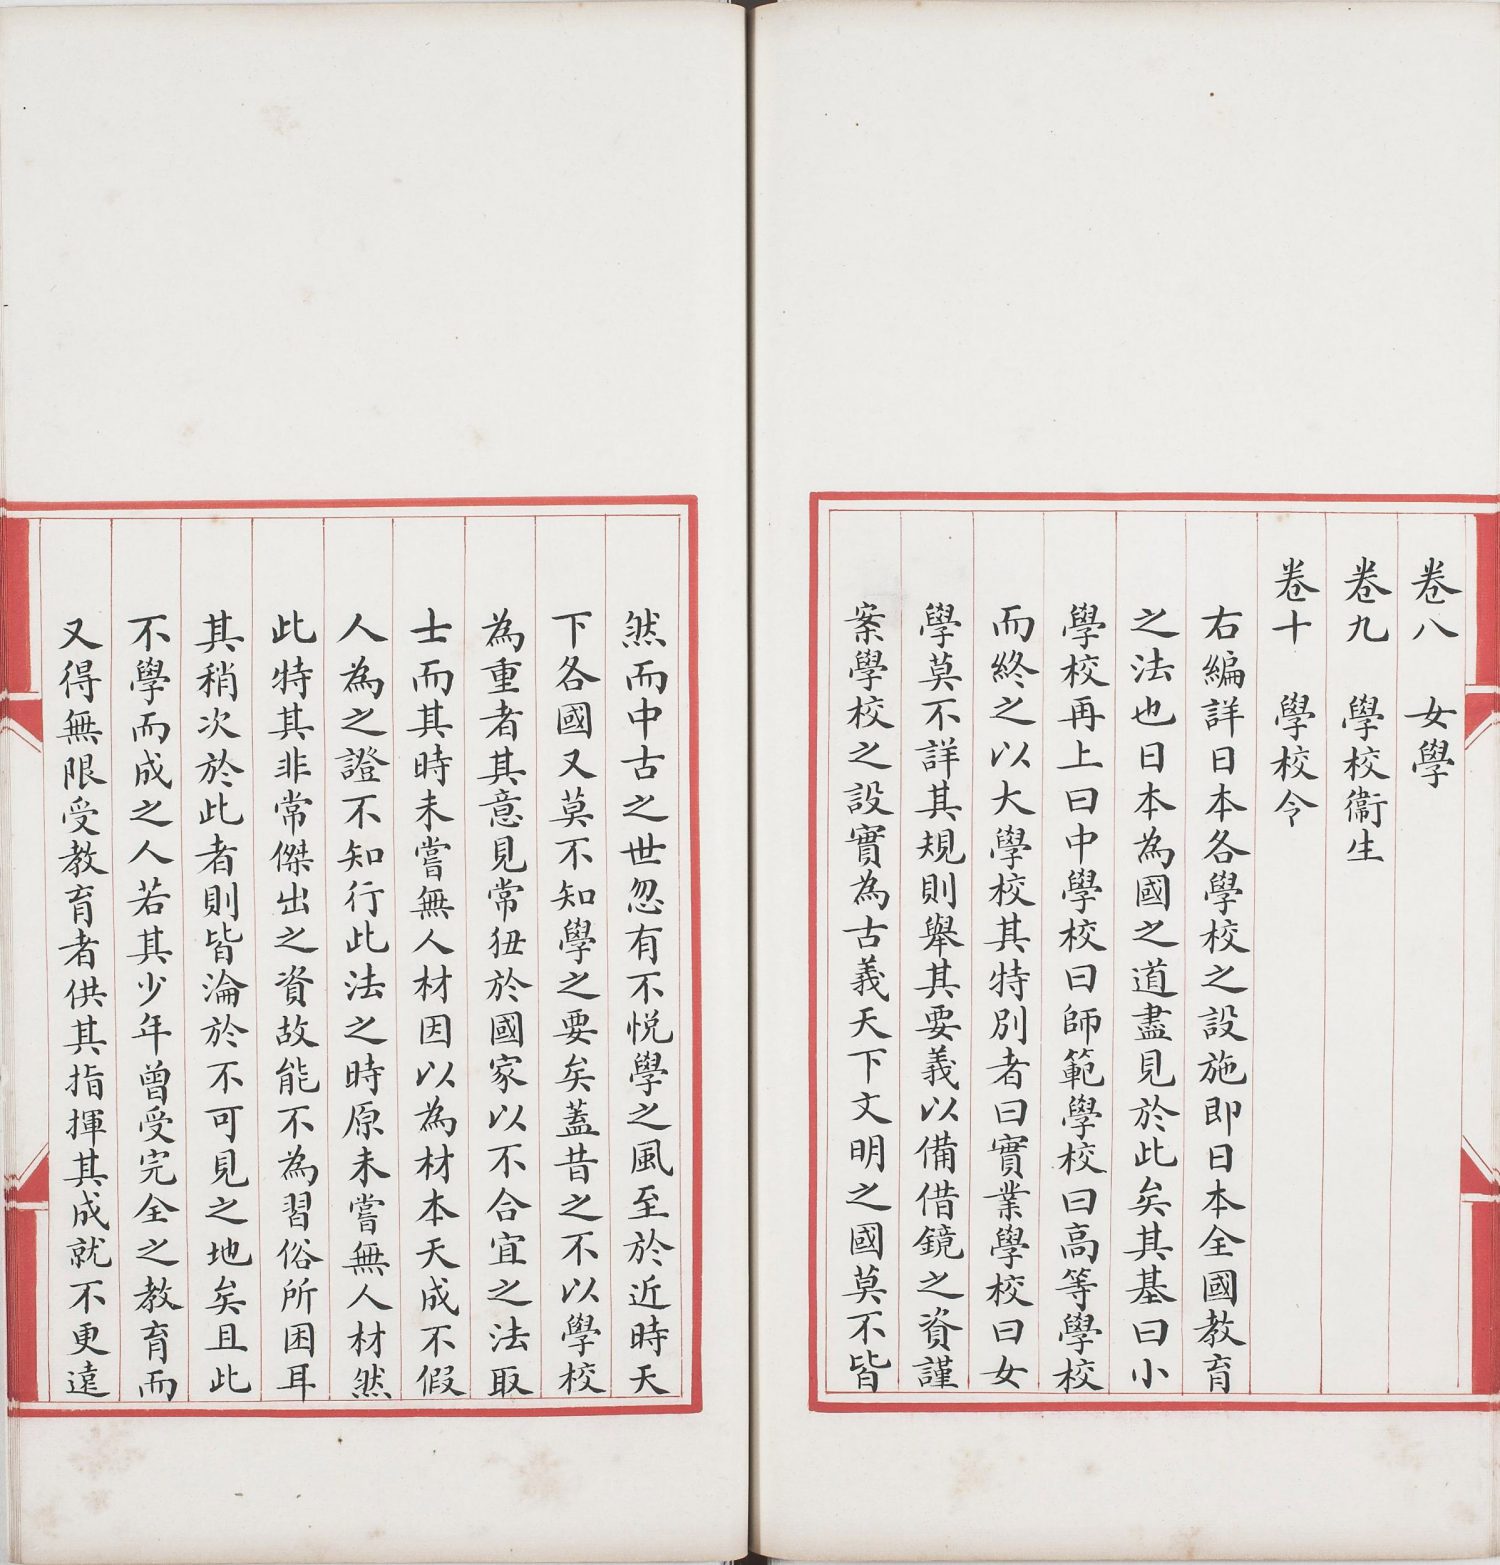 卷八　女學
卷九　學校衞生
卷十　學校令
右編詳日本各學校之設施即日本全國教育
之法也日本為國之道盡見於此矣其基曰小
學校再上曰中學校曰師範學校曰高等學校
而終之以大學校其特別者曰實業學校曰女
學莫不詳其規則舉其要義以備借鏡之資謹
案學校之設實為古義天下文明之國莫不皆
然而中古之世忽有不悅學之風至於近時天
下各國又莫不知學之要矣蓋昔之不以學校
為重者其意見常狃於國家以不合宜之法取
士而其時未嘗無人材因以為材本天成不假
人為之證不知行此法之時原未嘗無人材然
此特其非常傑出之資故能不為習俗所困耳
其稍次於此者則皆淪於不可見之地矣且此
不學而成之人若其少年曾受完全之教育而
又得無限受教育者供其指揮其成就不更遠